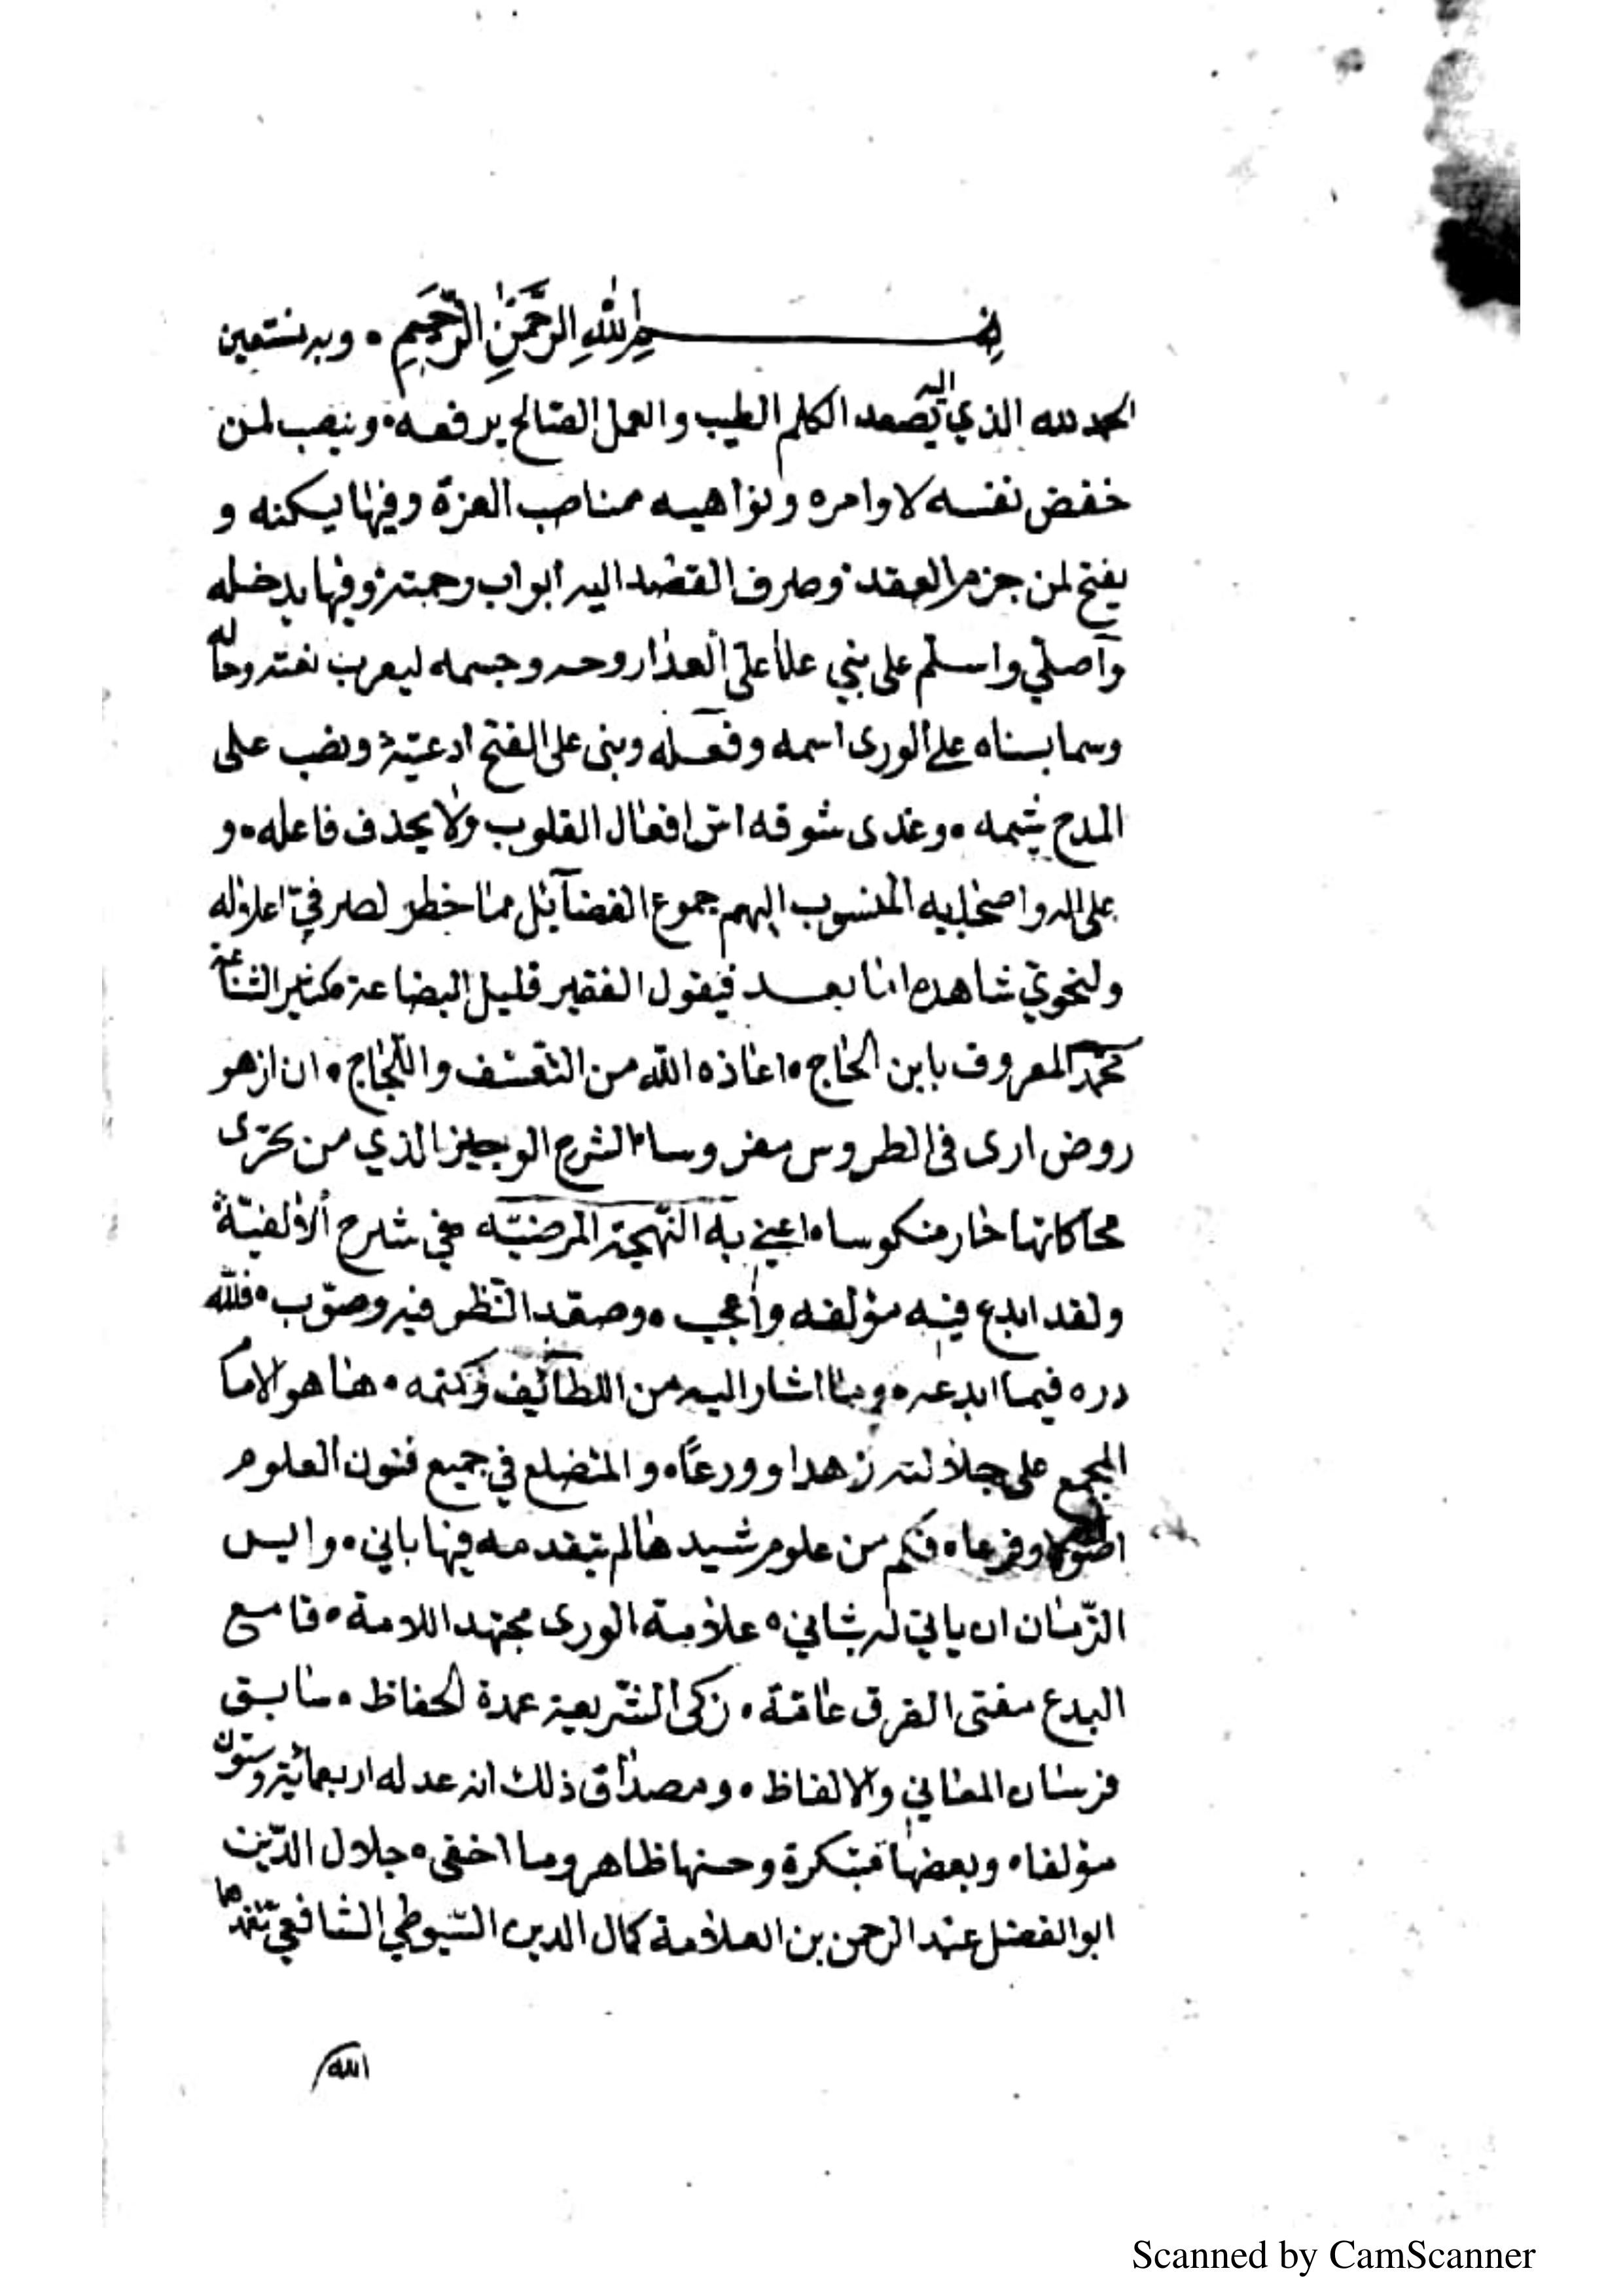 بسم الله الرَّحْمَنِ الرَّحِيمِ . وبه نستعين
الحمد لله الذي اليه يصعد الكلم الطيب والعمل الصالح يرفعه . وينصب لمن
خفض نفسه لاوامره ونواهيه مناصب العزة وفيها يسكنه و
يفتح لمن جزم العقد وصرف القصد اليه ابواب رحمته وفيها يدخله
وأصلي واسلم على نبي علا على روحه وجسمه ليعرب نعته وحاله
وسما بسناه على الورى اسمه وفعله وبنى على الفتح ادعيته ونصب على
المدح شيمه . وعدى شوقه افعال القلوب ولا يحذف فاعله . و
على اله واصحابه المنسوب اليهم جموع الفضائل ما خطر لصرفي اعلاله
ولنحوي شاهده اما بعد فيقول الفقير قليل البضاعة كثير الشناعة
محمد المعروف بابن الحاج . اعاذه الله من التعسف واللجاج . ان ازهر
روض ارى في الطروس مغروسا . الشرح الوجيز الذي من تحرى
محاكاتها خار منكوسا . اعني به البهجة المرضيّه في شرح الألفيّة
ولقد ابدع فيه مؤلفه واعجب . وصعد النظر فيه وصوّب . فلله
دره فيما ابدعه . وما اشار اليه من اللطائف وكتمه . ها هو الامام
المجمع على جلالته زهدا وورعًا . والمتضلع في جميع فنون العلوم
اصولا وفرعا . فكم من علوم شيدها لم يتقدمه فيها باني . وايس
الزّمان ان ياتي له بثاني . علامة الورى مجتهد اللامة . قامع
البدع مفتى الفرق عامّة . زكى الشريعة عمدة الحفاظ . سابق
فرسان المعاني والالفاظ . ومصداق ذلك انه عد له اربعمائة وستون
مؤلفا . وبعضها مبتكرة وحسنها ظاهر وما اخفى . جلال الدّين
ابو الفضل عبد الرحمن بن العلامة كمال الدين السّيوطي الشافعيّ تغمدهما
الله
Scanned by CamScanner